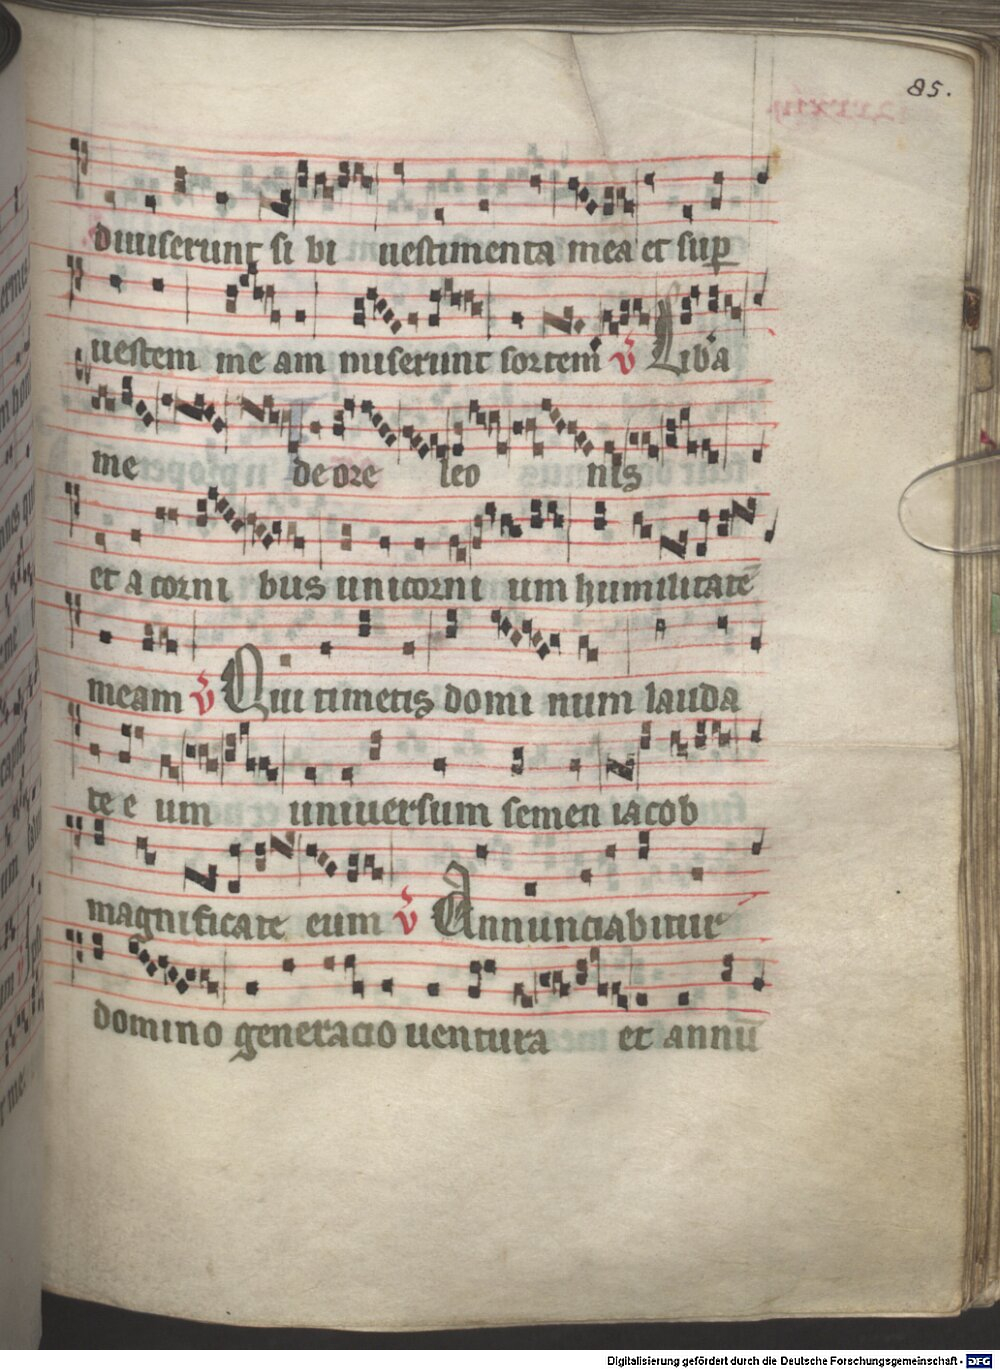 85.
diuiserunt si bi uestimenta mea et sup
uestem me am miserunt sortem v̄ Liba
me de ore leo nis
et a corni bus unicorni um humilitatē
meam v̄ Qui timetis domi num lauda
te e um uniuersum semen iacob
magnificate eum v̄ Annunciabitur
domino generacio uentura et annū
Digitalisierung gefördert durch die Deutsche Forschungsgemeinschaft - DFG